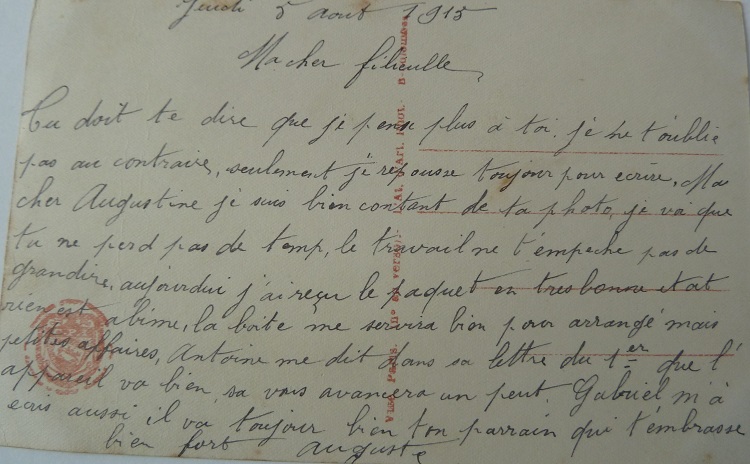 Jeudi 5 aout 1915
Ma cher filieulle
Tu doit te dire que je pense plus à toi. je ne t'oublie
pas au contraire, seulement je repousse toujour pour ecrire, Ma
cher Augustine je suis bien contant de ta photo, je voi que
tu ne perd pas de temp, le travail ne t'empeche pas de
grandire, aujourdui j'ai reçu le paquet en tres bonne etat
rien est abime, la boite me servira bien pour arrangé mais
petites affaires, Antoine me dit dans sa lettre du 1er que l'
appareil va bien, sa vous avancera un peut. Gabriel m'à
ecris aussi il va toujour bien ton parrain qui t'embrasse
bien fort Auguste
Visé Paris. no au verso.